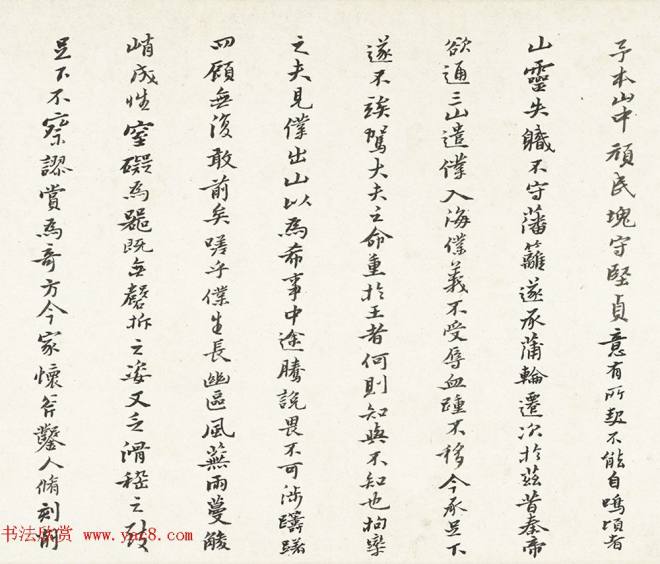 予本山中頑民塊守堅貞意有所契不能自鳴頃者
山靈失職不守藩籬遂承蒲輪遷次於茲昔秦帝
欲通三山遣僕入海僕義不受辱血踵不移今承足下
遂不竢駕大夫之命重於王者何則知與不知也拘攣
之夫見僕出山以為希事中途騰說畏不可涉躊躇
四顧無復敢前矣嗟乎僕生長幽區風蕪雨蔓
峭成性窒礙為器既無磬折之姿又乏滑稽之
足下不察謬賞為奇方今家懷斧鑿人脩刻
书法欣赏 www.yac8.com